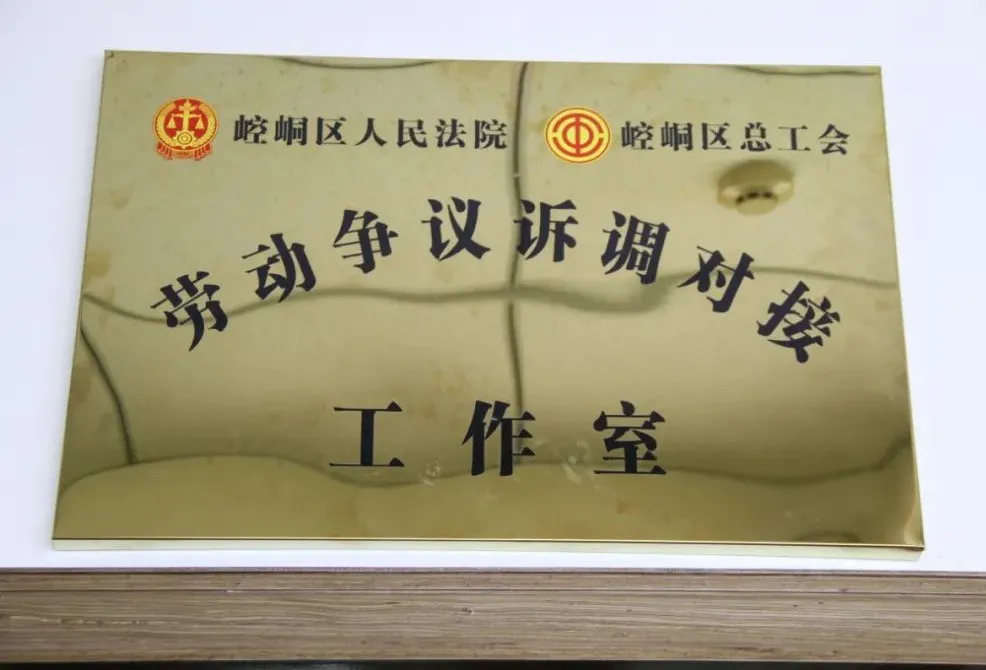 崆峒区人民法院 崆峒区总工会
劳动争议诉调对接
工作室